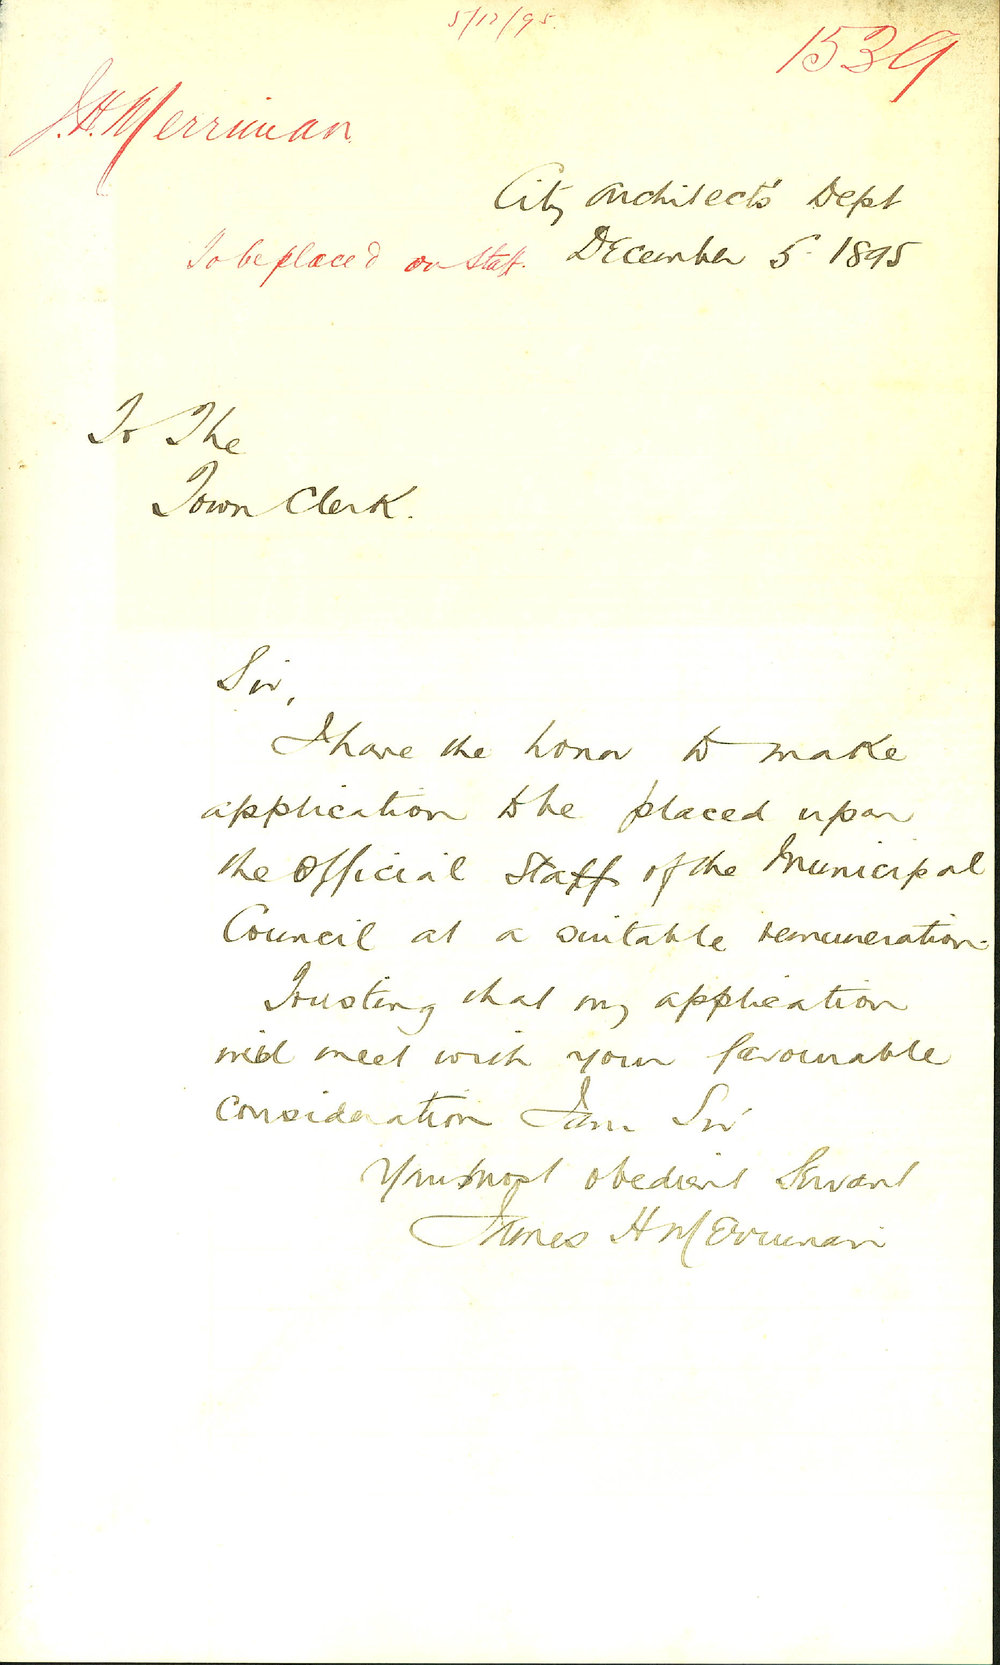 5/12/95.
1539
J. H. Merriman
City Architect's Dept
To be placed on Staff. December 5 1895
To The
Town Clerk.
Sir,
I have the honor to make
application to be placed upon
the Official Staff of the Municipal
Council at a suitable remuneration.
Trusting that my application
will meet with your favourable
consideration I am Sir
Your most obedient Servant
James H Merriman